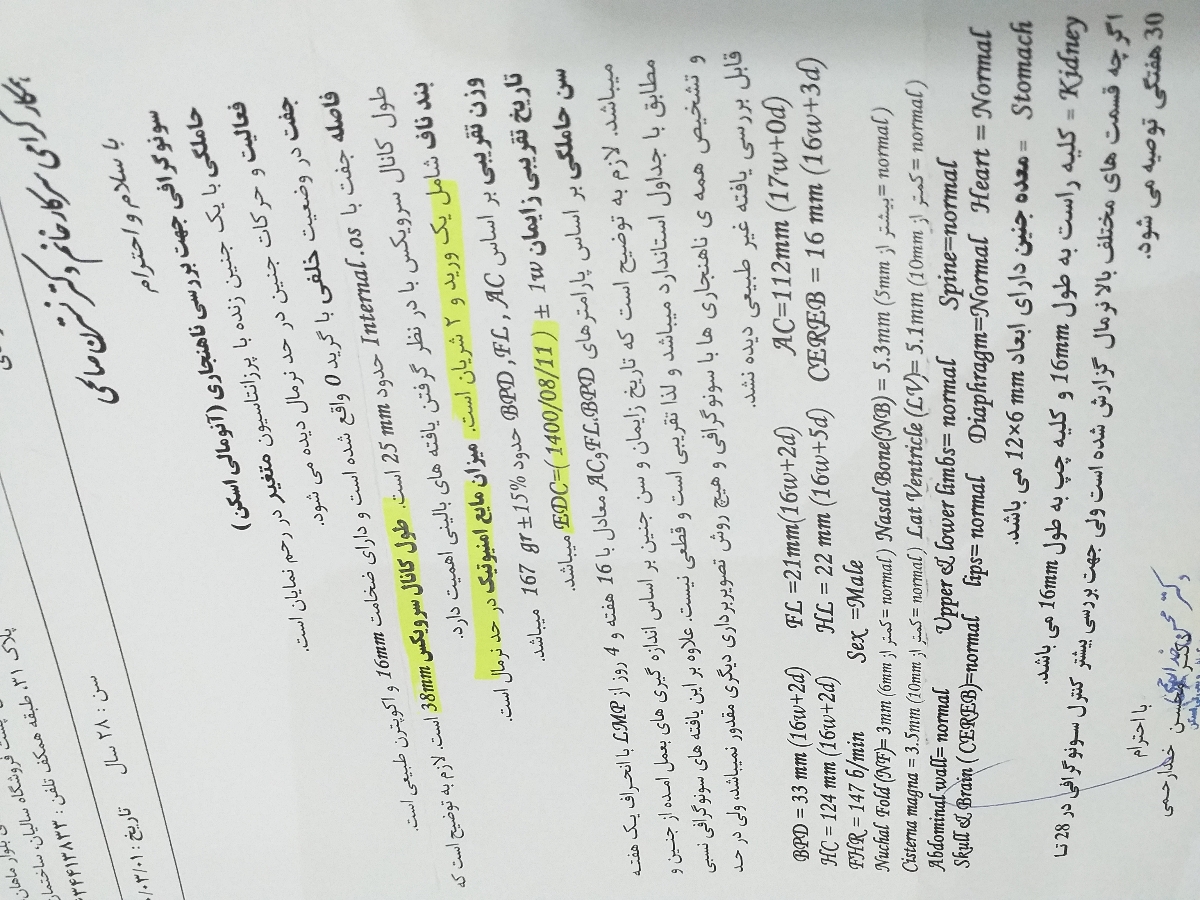 پلاک ۳۱، طبقه همکف تلفن : ۳۴۴۱۳۸۳۳
سن : ۲۸ سال تاریخ : ۰۳/۰۱/
همکار گرامی سرکار خانم دکتر نسترن صالحی
با سلام و احترام
سونوگرافی جهت بررسی ناهنجاری (آنومالی اسکن)
حاملگی با یک جنین زنده با پرزانتاسیون متغیر در رحم نمایان است.
فعالیت و حرکات جنین در حد نرمال دیده می شود.
جفت در وضعیت خلفی با گرید 0 واقع شده است و دارای ضخامت 16mm و اکوپترن طبیعی است.
فاصله جفت با Internal.os حدود 25 mm است. طول کانال سرویکس 38mm است. لازم به توضیح است که
طول کانال سرویکس با در نظر گرفتن یافته های بالینی اهمیت دارد.
بند ناف شامل یک ورید و ۲ شریان است. میزان مایع امنیوتیک در حد نرمال است.
وزن تقریبی بر اساس BPD , FL , AC حدود 167 gr ±15% میباشد.
تاریخ تقریبی زایمان EDC=( 1400/08/11 ) ± 1w میباشد.
سن حاملگی بر اساس پارامترهای FL،BPD و AC معادل با 16 هفته و 4 روز از LMP با انحراف یک هفته
میباشد. لازم به توضیح است که تاریخ زایمان و سن جنین بر اساس اندازه گیری های بعمل امده از جنین و
مطابق با جداول استاندارد میباشد و لذا تقریبی است و قطعی نیست. علاوه بر این یافته های سونوگرافی نسبی
و تشخیص همه ی ناهنجاری ها با سونوگرافی و هیچ روش تصویربرداری دیگری مقدور نمیباشد، ولی در حد
قابل بررسی یافته غیر طبیعی دیده نشد.
BPD = 33 mm (16w+2d) FL =21mm(16w+2d) AC=112mm (17w+0d)
HC = 124 mm (16w+2d) HL = 22 mm (16w+5d) CEREB = 16 mm (16w+3d)
FHR = 147 b/min Sex =Male
Nuchal Fold (NF)= 3mm (6mm کمتر از = normal ) Nasal Bone(NB) = 5.3mm (5mm بیشتر از = normal )
Cisterna magna = 3.5mm (10mm کمتر از = normal ) Lat Ventricle (LV)= 5.1mm (10mm کمتر از = normal )
Abdominal wall= normal Upper & lower limbs= normal Spine=normal
Skull & Brain (CEREB)=normal lips= normal Diaphragm=Normal Heart = Normal
Stomach = معده جنین دارای ابعاد 12×6 mm می باشد.
Kidney = کلیه راست به طول 16mm و کلیه چپ به طول 16mm می باشد.
اگر چه قسمت های مختلف بالا نرمال گزارش شده است ولی جهت بررسی بیشتر کنترل سونوگرافی در 28 تا
30 هفتگی توصیه می شود.
با احترام